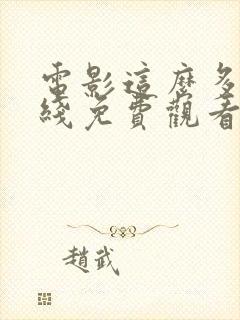 電影這麼多
綫免費觀看
趙武